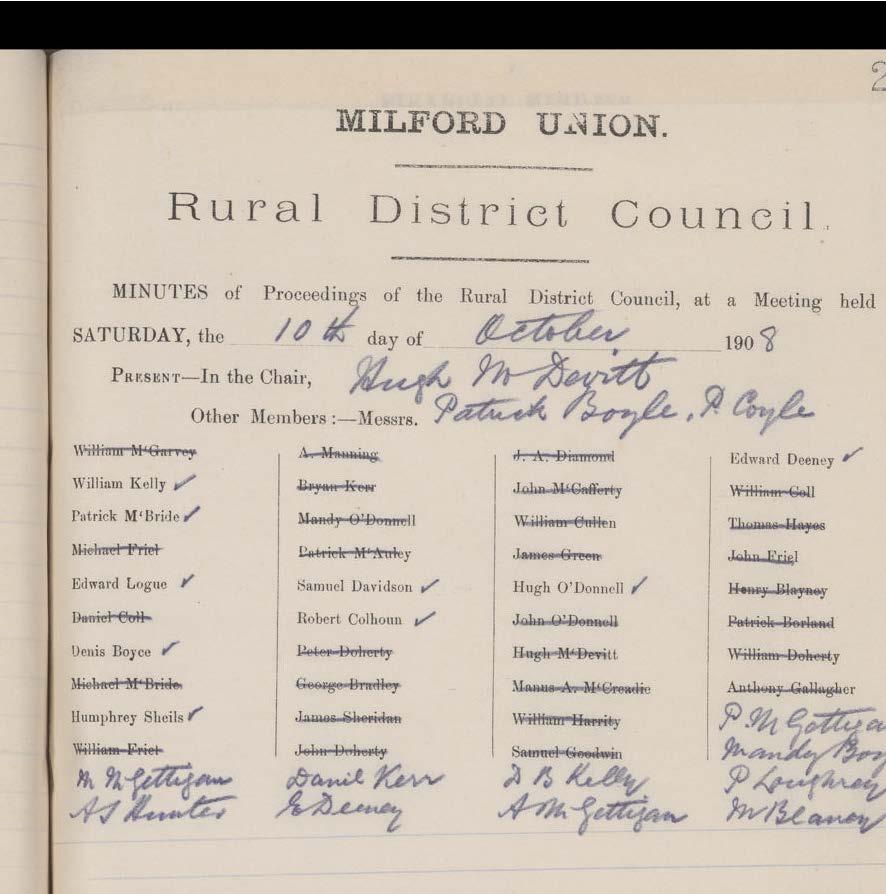 2
MILFORD UNION.
Rural District Council.
MINUTES of Proceedings of the Rural District Council, at a Meeting held
SATURDAY, the 10th day of October 1908
PRESENT—In the Chair, Hugh McDevitt
Other Members:—Messrs. Patrick Boyle, P. Coyle
William M‘Garvey A. Manning J. A. Diamond Edward Deeney ✓
William Kelly ✓ Bryan Kerr John M‘Cafferty William Coll
Patrick M‘Bride ✓ Mandy O’Donnell William Cullen Thomas Hayes
Michael Friel Patrick M‘Auley James Green John Friel
Edward Logue ✓ Samuel Davidson ✓ Hugh O’Donnell ✓ Henry Blayney
Daniel Coll Robert Colhoun ✓ John O’Donnell Patrick Borland
Denis Boyce ✓ Peter Doherty Hugh M‘Devitt William Doherty
Michael M‘Bride George Bradley Manus A. M‘Creadie Anthony Gallagher
Humphrey Sheils ✓ James Sheridan William Harrity P McGettiga
William Friel John Doherty Samuel Goodwin Mandy Boy
M McGettigan Daniel Kerr D B Kelly P Loughrey
A S Hunter E Deeney A McGettigan M Blaney